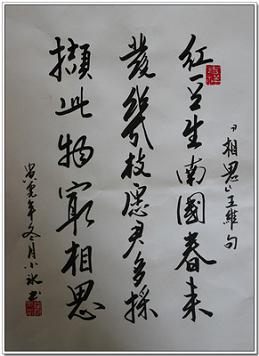 「相思」王維句
红豆生南國春来
發幾枝愿君多採
擷此物最相思
寅年冬月小冰书